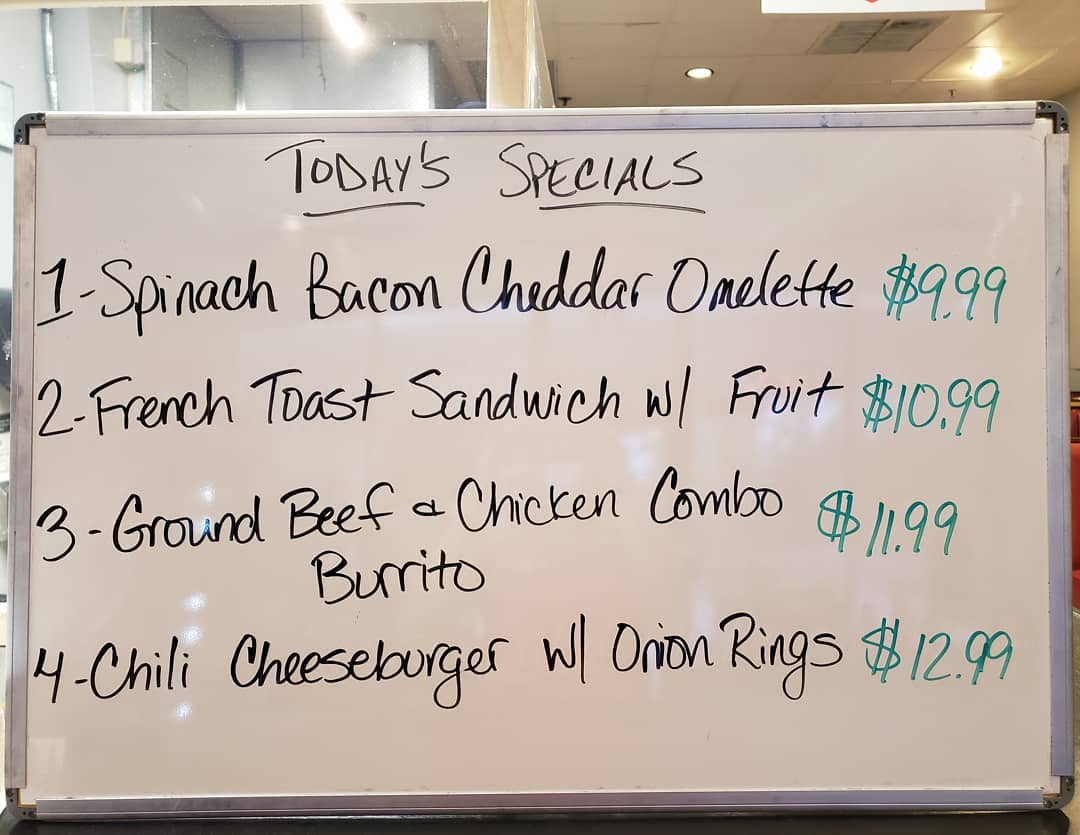 TODAY'S SPECIALS
1-Spinach Bacon Cheddar Omelette $9.99
2-French Toast Sandwich w/ Fruit $10.99
3-Ground Beef & Chicken Combo $11.99
Burrito
4-Chili Cheeseburger w/ Onion Rings $12.99